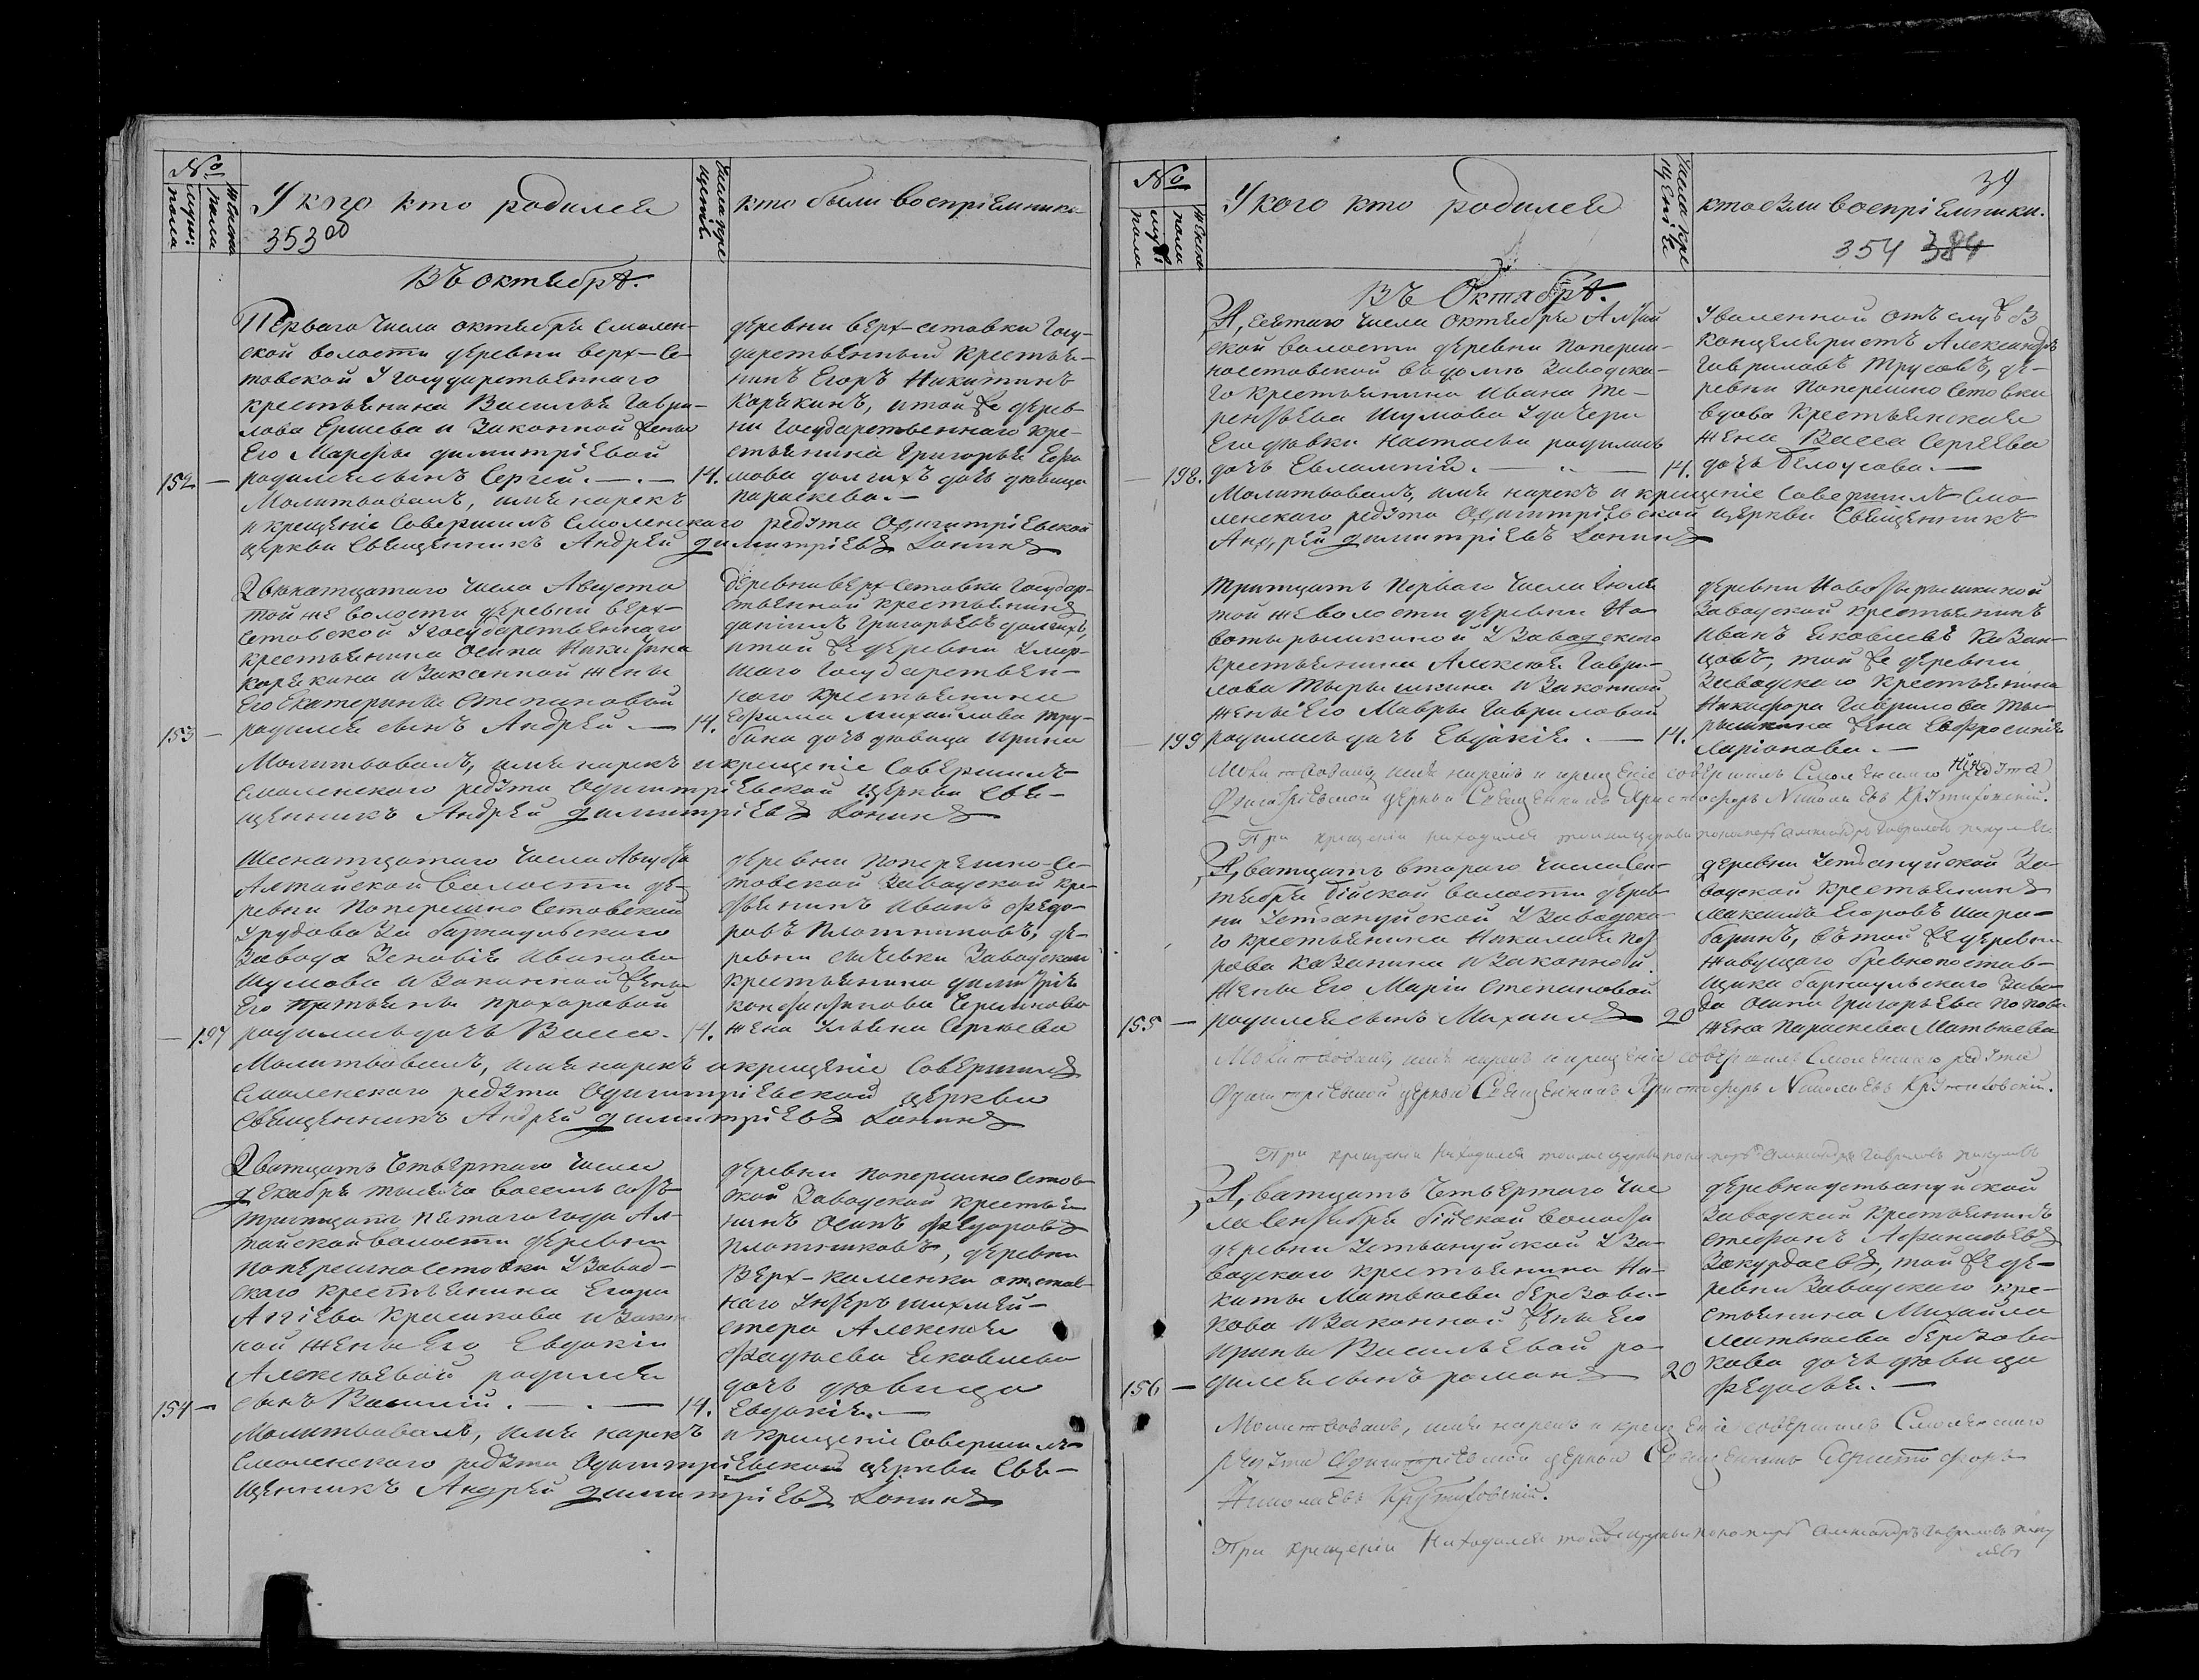 №
мужеска пола
женска пола
У кого кто родился
353 об
числа крещенiя
кто были воспрiемники
Въ октябрѣ.
Перваго числа октября Смолен-
ской волости деревни верх-се-
товской У государственнаго
крестьянина Василья Гаври-
лова Ершева и Законной жены
Его Марфы димитрiевой
152 — родился сынъ Сергей. — 14.
деревни верх-сетовки Госу-
дарственный крестья-
нинъ Егоръ Никитинъ
Корякинъ, и той же дерев-
ни Государственнаго кре-
стьянина Григорья Ефи
мова долгихъ дочь дѣвица
параскева. —
Молитвовалъ, имя нарекъ
и крещенiе Совершилъ Смоленскаго редута Одигитрiевской
церкви Священникъ Андрей димитрiевъ Лонинъ
Двѣнатцатаго числа Августа
той же волости деревни верх-
сетовской У государственнаго
крестьянина Осипа Никитина
Корякина и Законной жены
Его Екатерины степановой
153 — родился сынъ Андрей — 14.
деревни верх-сетовки Государ-
ственной крестьянинъ
данiилъ Григорьевъ долгихъ,
и той же деревни Умер-
шаго Государствен-
наго крестьянина
Ефима Михайлова Тру-
бина дочь дѣвица Ирина
Молитвовалъ, имя нарекъ и крещенiе Совершилъ
Смоленскаго редута Одигитрiевской церкви Свя-
щенникъ Андрей димитрiевъ Лонинъ
Шеснатцатаго числа Августа
Алтайской волости де-
ревни Поперешно Сетовской
Урядова За барнаульскаго
Завода Зеновiя Иванова
Шумова и Законной жены
Его татьяны прохоровой
— 197 родилась дочь Васса. 14.
деревни Поперешно-Се-
товской Заводской кре-
стьянинъ Иванъ Федо-
ровъ Плотниковъ, де-
ревни сычевки Заводскаго
крестьянина димитрiя
константинова Черникова
жена Ульяна Сергѣева
Молитвовалъ, имя нарекъ и крещенiе Совершилъ
Смоленскаго редута Одигитрiевской церкви
Священникъ Андрей димитрiевъ Лонинъ
Дватцать Четвертаго числа
декабря тысяча восемь сотъ
тритцать пятаго года Ал-
тайской волости деревни
Поперешно Сетовки У Завод-
скаго крестьянина Егора
Аггiева Крашкова и Закон
ной жены Его Евдокiи
Алексѣевой родился
154 — сынъ Василiй. — 14.
деревни поперешно Сетов-
ской Заводской крестья-
нинъ Осипъ Федоровъ
Плотниковъ, деревни
Верх-каменки отстав-
наго Унтеръ шихмей-
стера Алексѣя
Фадѣева Яковлева
дочь дѣвица
Евдокiя. —
Молитвовалъ, имя нарекъ и крещенiе Совершилъ
Смоленскаго редута Одигитрiевской церкви Свя-
щенникъ Андрей димитрiевъ Лонинъ
№
мужеска пола
женска пола
У кого кто родился
числа крещенiя
кто были воспрiемники.
39
354 384
Въ Октябрѣ.
Десятаго числа Октября Алтай
ской волости деревни Попереш-
носетовской вѣдомства Заводска-
го крестьянина Ивана Те-
рентьева Шумова У дочери
Его дѣвки Настасьи родилась
— 198. дочь Евлампiя. — 14.
Уволенной отъ службы
концеляристъ Александръ
Гавриловъ Трусовъ, де-
ревни Поперешно Сетовки
вдова крестьянская
жена Васса Сергѣева
дочь Белоусова. —
Молитвовалъ, имя нарекъ и крещенiе Совершилъ Смо-
ленскаго редута Одигитрiевской церкви Священникъ
Андрей димитрiевъ Лонинъ
Тритцать Перваго числа Iюля
той же волости деревни Но
вотырышкиной У Заводскаго
крестьянина Алексѣя Гаври-
лова Тырышкина и Законной
жены Его Мавры Гавриловой
— 199 родилась дочь Евдокiя. — 14.
деревни Новотырышкиной
Заводской крестьянинъ
Иванъ Яковлевъ Казан-
цовъ, той же деревни
Заводскаго крестьянина
Никифора Гаврилова Ты-
рышкина жена Евфросинiя
Ларiонова. —
Молитвовалъ, имя нарекъ и крещенiе совершилъ Смоленскаго редута
Одигитрiевской церкви Священникъ Христофоръ Николаевъ
При крещенiи находился той же церкви пономарь Александръ Гавриловъ
Дватцать втораго числа Сен-
тября бiйской волости дерев-
ни Устьануйской У Заводска-
го крестьянина Николая Пет
рова Казанина и Законной
жены Его Марiи Степановой
155 — родился сынъ Михаилъ 20
деревни Устьануйской За-
водской крестьянинъ
Максимъ Егоровъ Шара-
баринъ, въ той же деревни
живущаго бревнопостав-
щика барнаульскаго Заво-
да Осипа Григорьева Попова
жена Параскева Матвѣева
Молитвовалъ, имя нарекъ и крещенiе совершилъ Смоленскаго редута
Одигитрiевской церкви Священникъ Христофоръ Николаевъ
При крещенiи Находился той же церкви пономарь Александръ Гавриловъ
Дватцать Четвертаго чис
ла Сентября бiйской волости
деревни Устьануйской У За-
водскаго крестьянина Ни-
киты Матвѣева березови-
кова и Законной жены Его
Ирины Васильевой ро-
156 — дился сынъ романъ 20
деревни устьануйской
Заводскiй крестьянинъ
Стефанъ Афанасьевъ
Закурдаевъ, той же де-
ревни Заводскаго кре-
стьянина Михайла
Матвѣева березови
кова дочь дѣвица
Федосья. —
Молитвовалъ, имя нарекъ и крещенiе совершилъ Смоленскаго
редута Одигитрiевской церкви Священникъ Христофоръ
Николаевъ
При крещенiи Находился той же церкви пономарь Александръ Гавриловъ